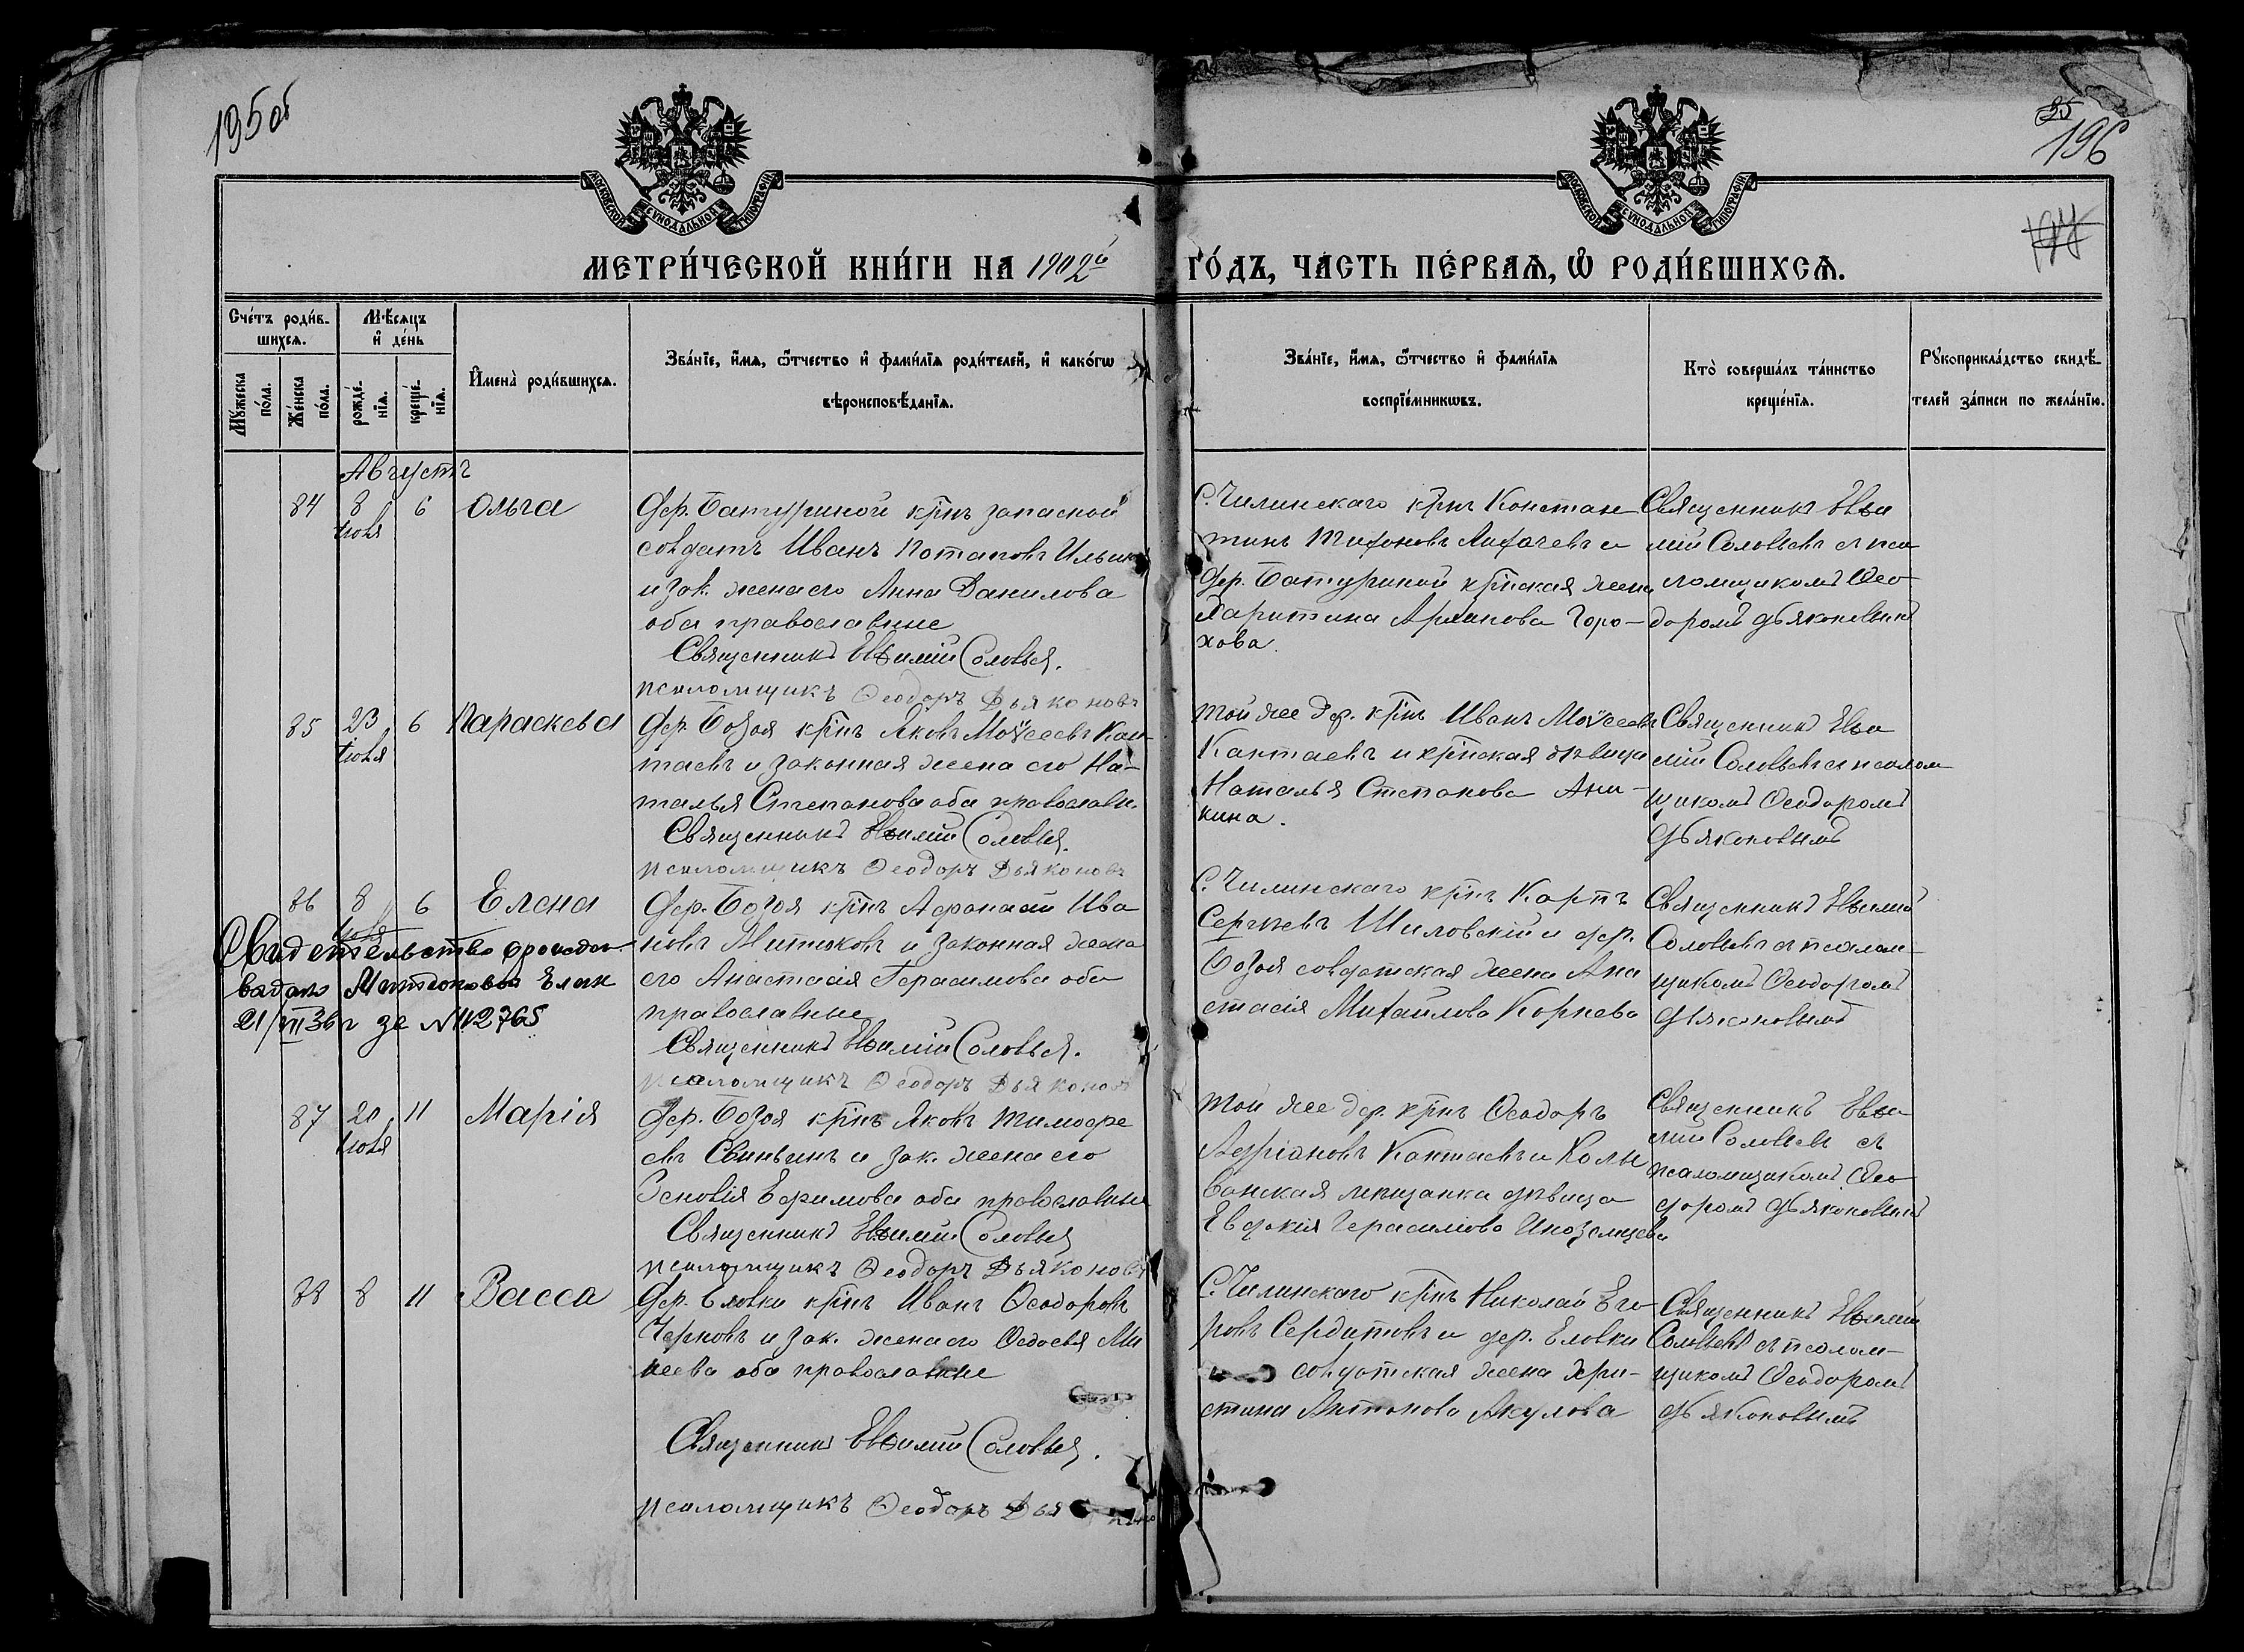 195 об
25
196
МОСКОВСКОЙ СѴНОДАЛЬНОЙ ТИПОГРАФІИ
МОСКОВСКОЙ СѴНОДАЛЬНОЙ ТИПОГРАФІИ
МЕТРИ́ЧЕСКОЙ КНИ́ГИ НА 1902й ГО́ДЪ, ЧА́СТЬ ПЕ́РВАѦ, Ѽ РОДИ́ВШИХСѦ.
Сче́тъ роди́в-
шихсѧ.
Мꙋ́жеска по́ла.
Же́нска по́ла.
Мѣ́сѧцъ и҆ де́нь
рожде́-нїѧ.
креще́-нїѧ.
И҆мена̀ роди́вшихсѧ.
Зва́нїе, и҆́мѧ, ѻ҆́тчество и҆ фами́лїѧ роди́телей, и҆ како́гѡ
вѣроисповѣ́данїѧ.
Зва́нїе, и҆́мѧ, ѻ҆́тчество и҆ фами́лїѧ
воспрїе́мникѡвъ.
Кто̀ соверша́лъ та́инство
креще́нїѧ.
Рꙋкоприкла́дство свидѣ́-
телей за́писи по жела́нїю.
Августъ
84 8 Іюля 6 Ольга
Дер. Батуриной крнъ запасной
солдатъ Иванъ Потаповъ Ильинъ
и зак. жена его Анна Данилова
оба православные
Священникъ Евѳимій Соловьевъ.
псаломщикъ Ѳеодоръ Дьяконовъ
С. Чилинскаго крнъ Констан
тинъ Тихоновъ Лихачевъ и
дер. Батуриной крнская жена
Харитина Горо-
хова.
Священникъ Евѳи
мій Соловьевъ съ пса
ломщикомъ Ѳео-
доромъ Дьяконовымъ
85 23 Іюля 6 Параскева
Дер. Бозоя крнъ Яковъ Моѵсеевъ Кан
таевъ и законная жена его На-
талья Степанова оба православн.
Священникъ Евѳимій Соловьевъ.
псаломщикъ Ѳеодоръ Дьяконовъ
той же дер. крнъ Иванъ Моѵсеевъ
Кантаевъ и крнская дѣвица
Наталья Степанова Ани-
кина.
Священникъ Евѳи
мій Соловьевъ съ псалом
щикомъ Ѳеодоромъ
Дьяконовымъ
86 8 Іюля 6 Елена
Дер. Бозоя крнъ Афанасій Ива
новъ Митюковъ и законная жена
его Анастасія Герасимова оба
православные
Священникъ Евѳимій Соловьевъ.
псаломщикъ Ѳеодоръ Дьяконовъ
Свидетельство о рожден.
выдано Митюковой Елен
21/VII 36 г за № 112765
С. Чилинскаго крнъ Карпъ
Сергѣевъ Шиловскій и дер.
Бозоя солдатская жена Ана
стасія Михайлова Корнева
Священникъ Евѳимій
Соловьевъ съ псалом-
щикомъ Ѳеодоромъ
Дьяконовымъ
87 20 Іюля 11 Марія
Дер. Бозоя крнъ Яковъ Тимофе
евъ Свиньинъ и зак. жена его
Зеновія Ефимова оба православные
Священникъ Евѳимій Соловьевъ
псаломщикъ Ѳеодоръ Дьяконовъ
той же дер. крнъ Ѳеодоръ
Адріановъ Кантаевъ и Колы
ванская мещанка дѣвица
Евдокія Герасимова Иноземцева
Священникъ Евѳи
мій Соловьевъ съ
псаломщикомъ Ѳео
доромъ Дьяконовымъ
88 8 11 Васса
Дер. Еловки крнъ Иванъ Ѳеодоровъ
Черновъ и зак. жена его Ѳедосья Ми
неева оба православные
Священникъ Евѳимій Соловьевъ.
псаломщикъ Ѳеодоръ
С. Чилинскаго крнъ Николай Его
ровъ Сердитовъ и дер. Еловки
солдатская жена Хри-
стина Антонова Акулова
Священникъ Евѳимій
Соловьевъ съ псалом-
щикомъ Ѳеодоромъ
Дьяконовымъ